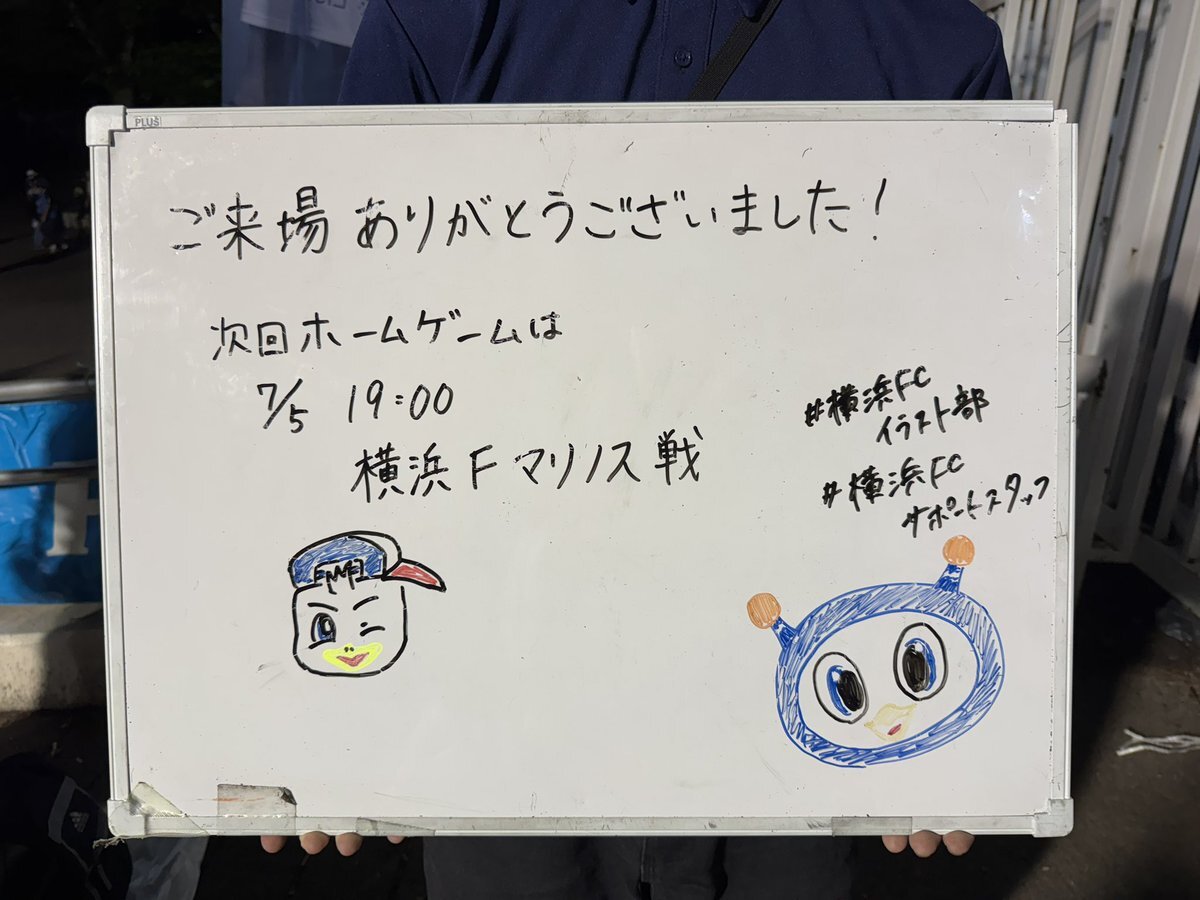 PLUS
ご来場 ありがとうございました!
次回ホームゲームは
7/5 19:00
横浜Fマリノス戦
#横浜FC
イラスト部
#横浜FC
サポートスタッフ